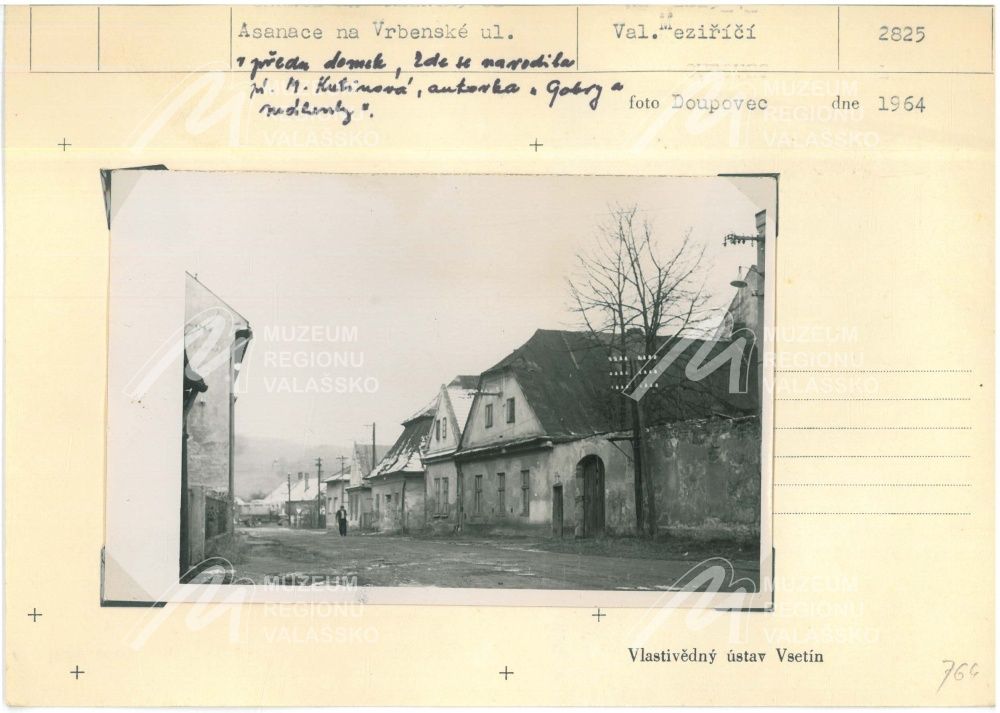 Asanace na Vrbenské ul.
Val. Meziříčí
2825
v předu domek, zde se narodila
pí. M. Kubínová, autorka „Gabry a
Málinky".
foto Doupovec dne 1964
MUZEUM
REGIONU
VALAŠSKO
MUZEUM
REGIONU
VALAŠSKO
MUZEUM
REGIONU
VALAŠSKO
MUZEUM
REGIONU
VALAŠSKO
MUZEUM
REGIONU
VALAŠSKO
MUZEUM
REGIONU
VALAŠSKO
Vlastivědný ústav Vsetín
764